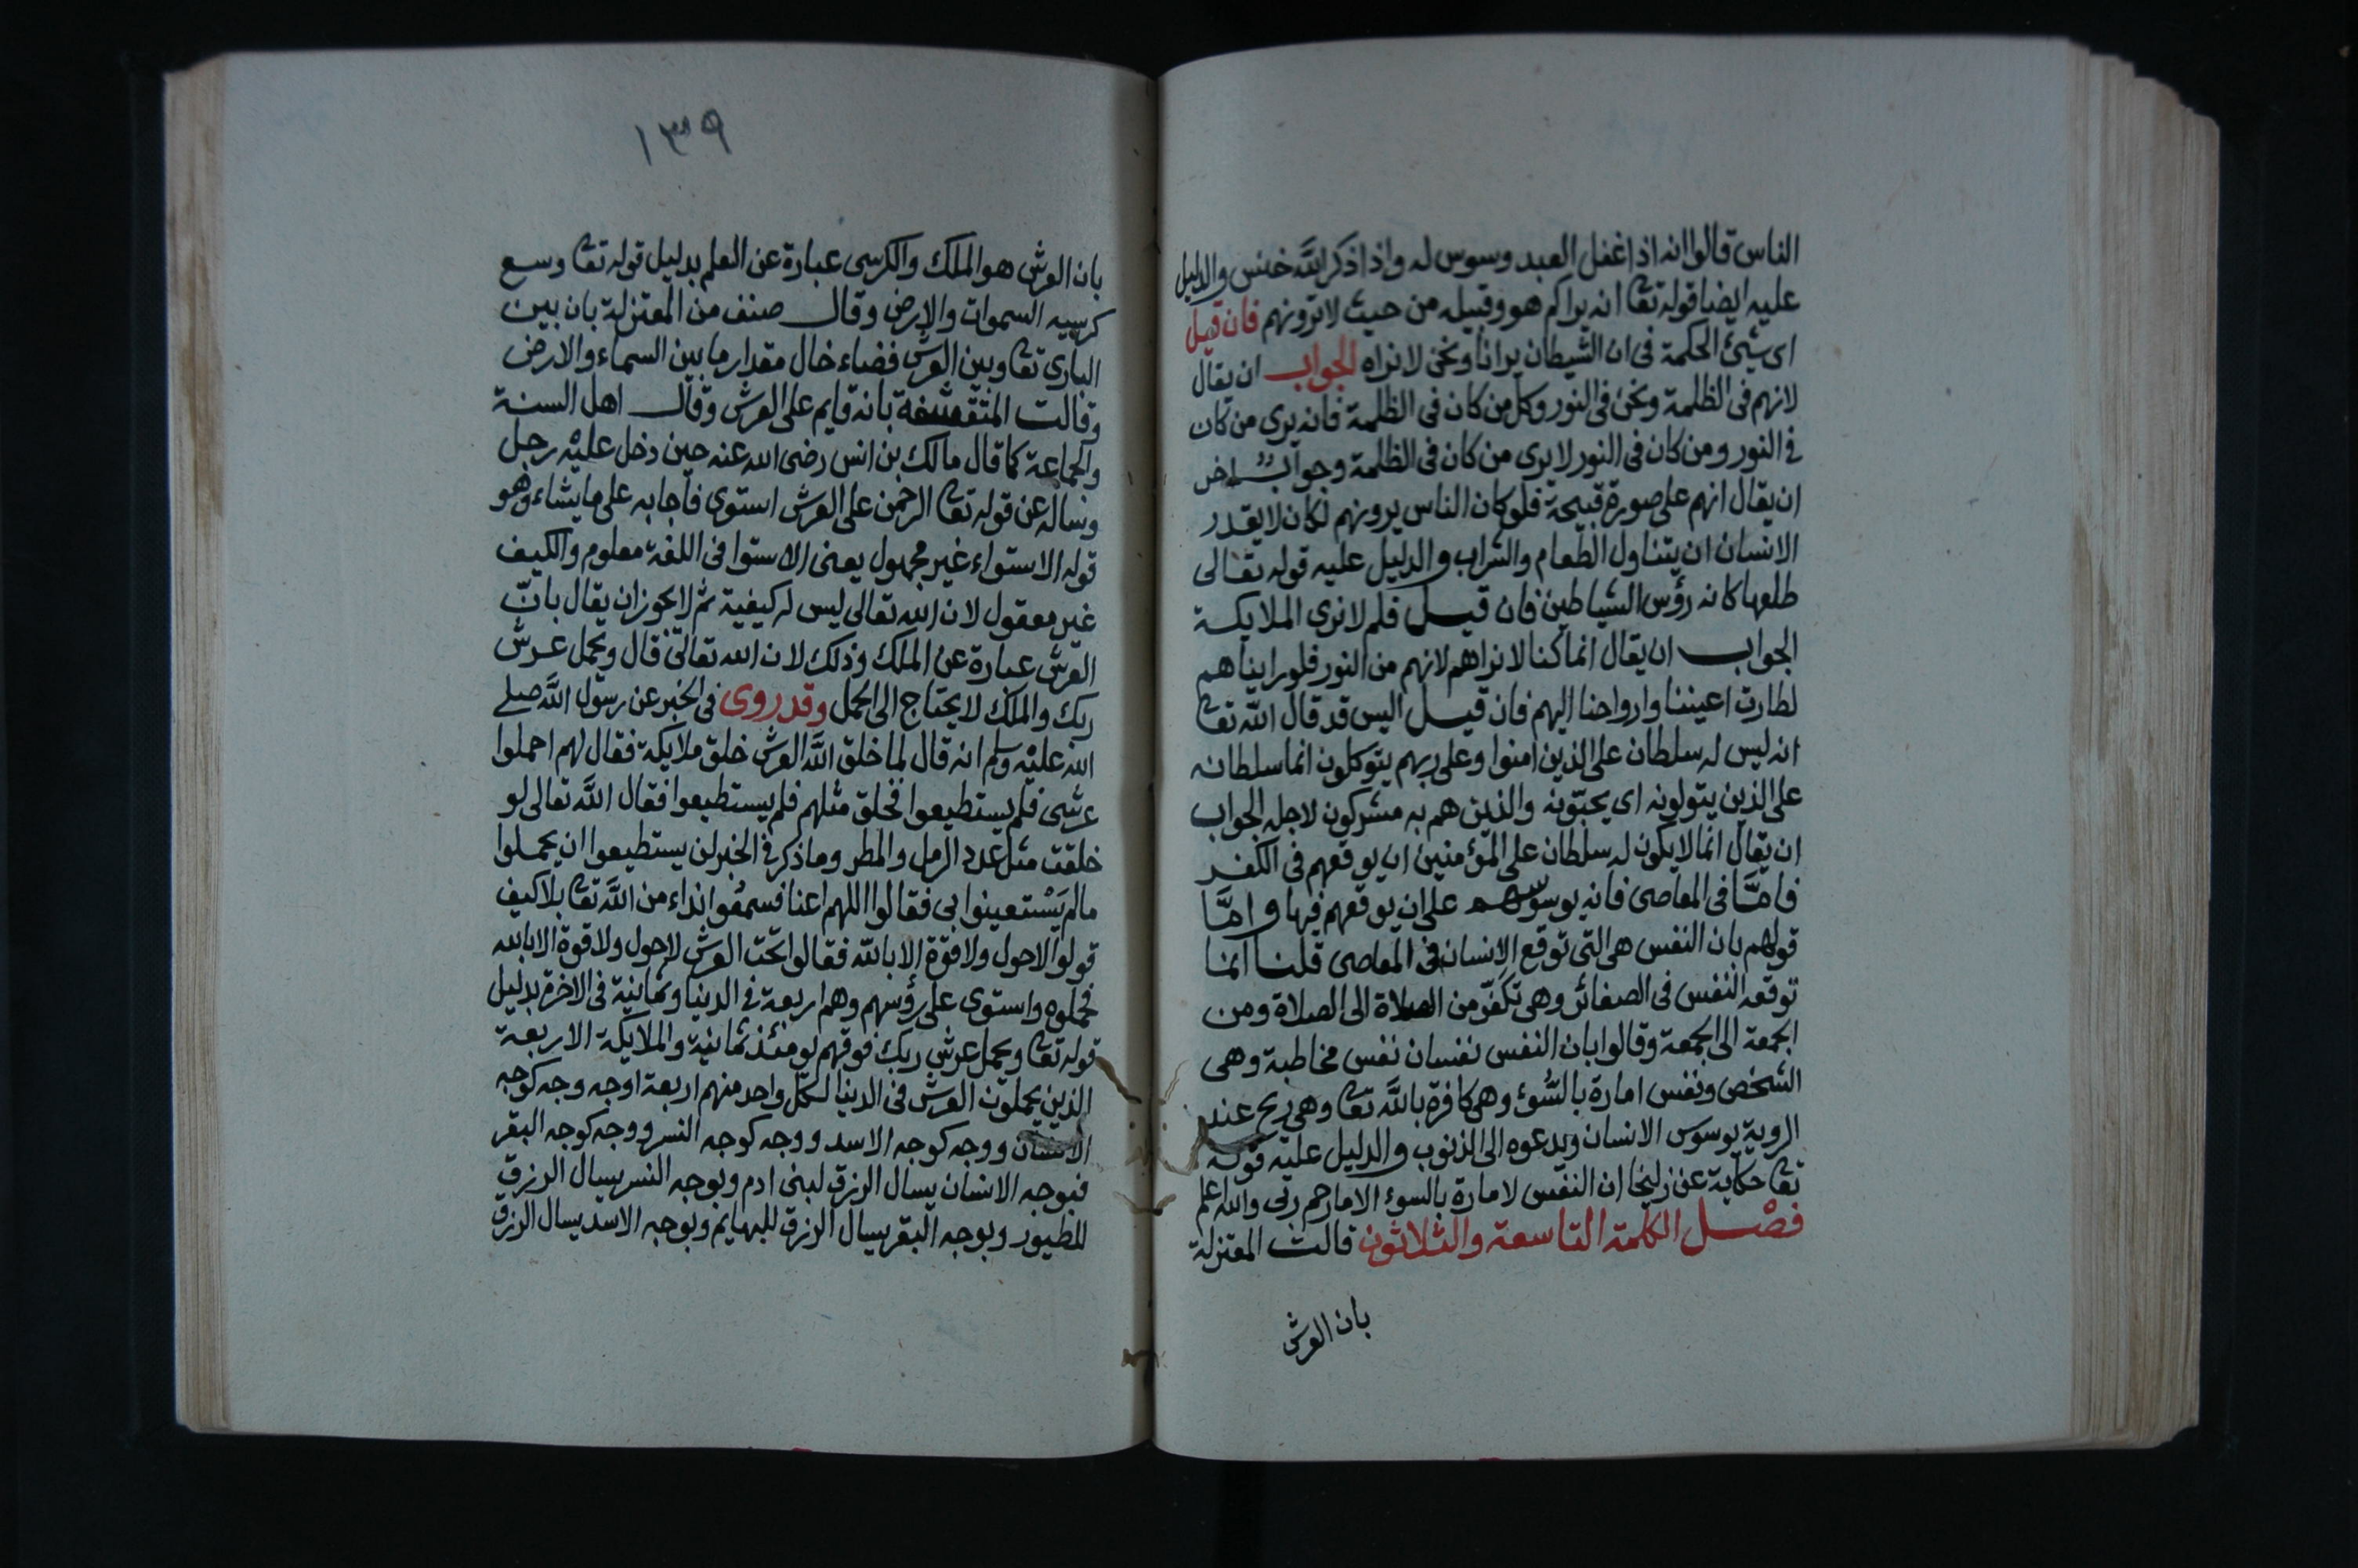 الناس قالوا انه اذا غفل العبد وسوس له واذا ذكر الله خنس والدليل
عليه ايضا قوله تعا انه يراكم هو وقبيله من حيث لا ترونهم فان قيل
اى شيئ الحكمة فى ان الشيطان يرانا ونحن لا نراه الجواب ان يقال
لانهم فى الظلمة ونحن فى النور وكل من كان فى الظلمة فانه يرى من كان
فى النور ومن كان فى النور لا يرى من كان فى الظلمة وجواب اخر
ان يقال انهم على صورة قبيحة فلو كان الناس يرونهم لكان لا يقدر
الانسان ان يتناول الطعام والشراب والدليل عليه قوله تعالى
طلعها كانه رؤس الشياطين فان قيل فلم لا نرى الملايكة
الجواب ان يقال انما كنا لا نراهم لانهم من النور فلو رايناهم
لطارت اعيننا وارواحنا اليهم فان قيل اليس قد قال الله تعا
انه ليس له سلطان على الذين امنوا وعلى ربهم يتوكلون انما سلطانه
على الذين يتولونه اى يحبّونه والذين هم به مشركون لاجله الجواب
ان يقال انما لا يكون له سلطان على المؤمنين ان يوقعهم فى الكفر
فامَّا فى المعاصى فانه يوسوسهم على ان يوقعهم فيها وامَّا
قولهم بان النفس هى التى توقع الانسان فى المعاصى قلنا انما
توقعه النفس فى الصغائر وهى تكفّر من الصلاة الى الصلاة ومن
الجمعة الى الجمعة وقالوا بان النفس نفسان نفس مخاطبة وهى
الشخص ونفس امارة بالسُّوء وهى كافرة بالله تعا وهى ريح عند
الروية يوسوس الانسان ويدعوه الى الذنوب والدليل عليه قوله
تعا حكاية عن زليخا ان النفس لامارة بالسوء الا ما رحم ربى والله اعلم
فصْل الكلمة التاسعة والثلاثون قالت المعتزلة
بان العرش
١٣٩
بان العرش هو الملك والكرسى عبارة عن العلم بدليل قوله تعا وسع
كرسيه السموات والارض وقال صنف من المعتزلة بان بين
البارى تعا وبين العرش فضاء خال مقدار ما بين السماء والارض
وقالت المتقشفة بانه قايم على العرش وقال اهل السنة
والجماعة كما قال مالك بن انس رضى الله عنه حين دخل عليْه رجل
وساله عن قوله تعا الرحمن على العرش استوى فاجابه على ما يشاء وهو
قوله الاستواء غير مجهول يعنى الاستوا فى اللغة معلوم والكيف
غير معقول لان الله تعالى ليس له كيفية ثم لا يجوز ان يقال بانّ
العرش عبارة عن الملك وذلك لان الله تعالى قال ويحمل عرش
ربك والملك لا يحتاج الى الحمل وقد روى فى الخبر عن رسول الله صلى
الله عليْه وسلم انه قال لما خلق الله العرش خلق ملايكة فقال لهم احملوا
عرشى فلم يستطيعوا فخلق مثلهم فلم يستطيعوا فقال الله تعالى لو
خلقت مثل عدد الرمل والمطر وما ذكر فى الخبر لن يستطيعوا ان يحملوا
ما لم يَسْتعينوا بى فقالوا اللهم اعنا فسمعُوا نداء من الله تعا بلا كيف
قولوا لا حول ولا قوّة الا بالله فقالوا تحت العرش لا حول ولا قوة الا بالله
فحملوه واستوى على رؤسهم وهم اربعة فى الدنيا وثمانية فى الاخرة بدليل
قوله تعا ويحمل عرش ربك فوقهم يومئذ ثمانية والملايكة الاربعة
الذين يحملون العرش فى الدنيا لكل واحد منهم اربعة اوجه وجه كوجه
الانسان ووجه كوجه الاسد ووجه كوجه النسر ووجه كوجه البقر
فبوجه الانسان يسال الرزق لبنى ادم وبوجه النسر يسال الرزق
للطيور وبوجه البقر يسال الرزق للبهايم وبوجه الاسد يسال الرزق